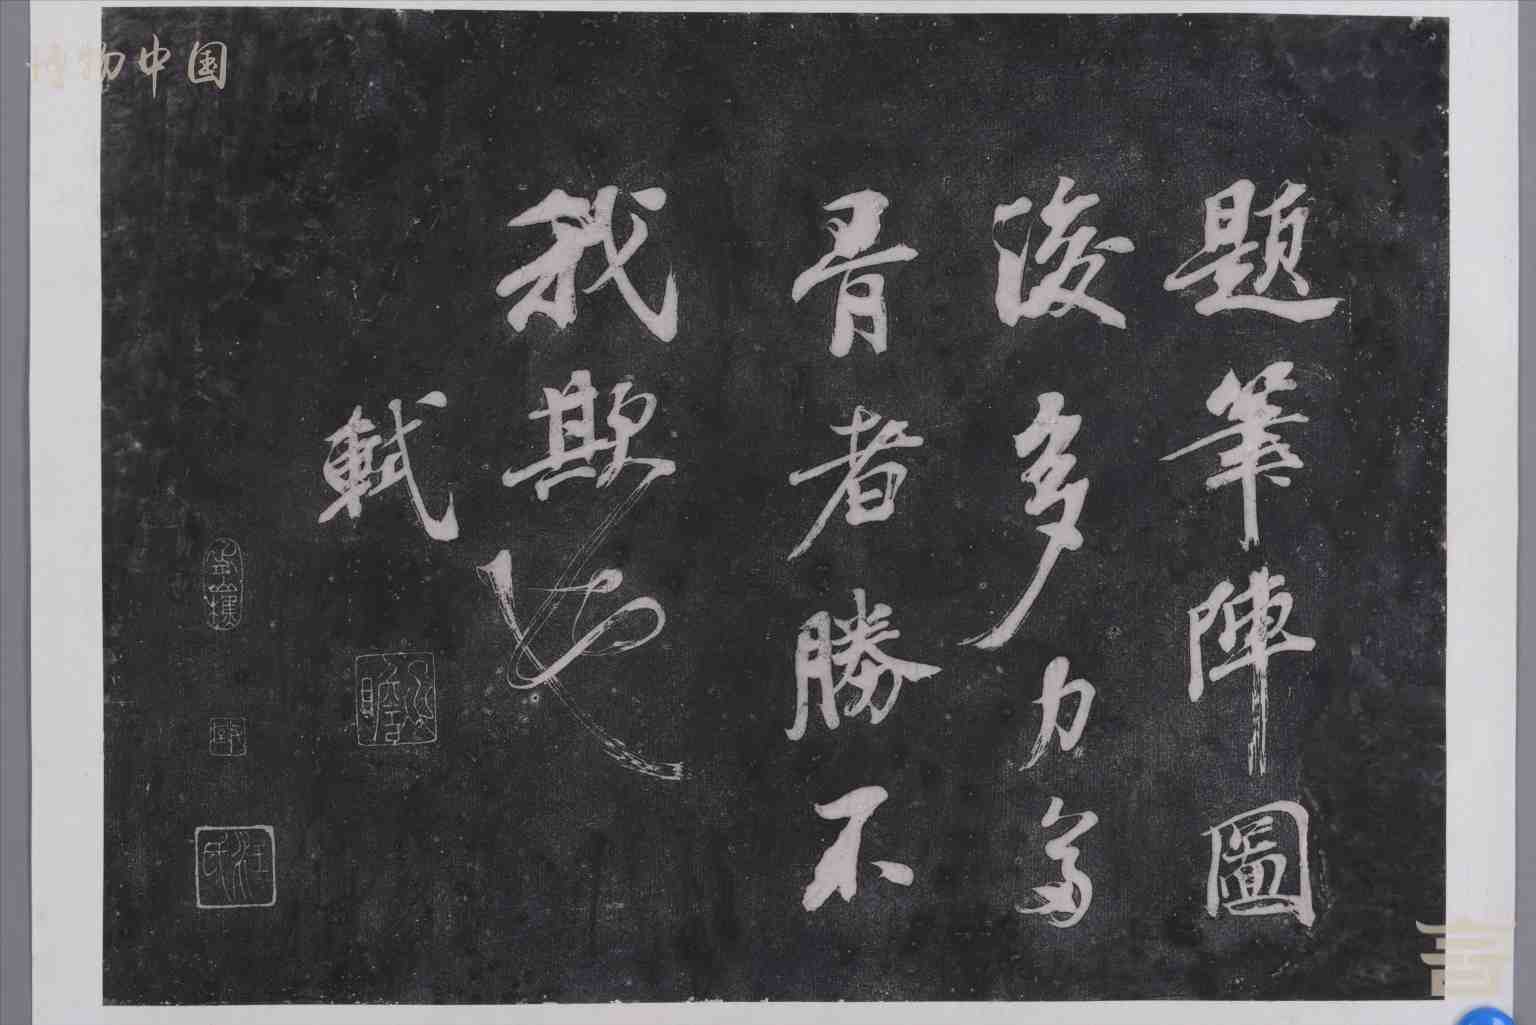 博物中国
題筆陣圖
後多力多
骨者勝不
我欺也
軾
汪氏